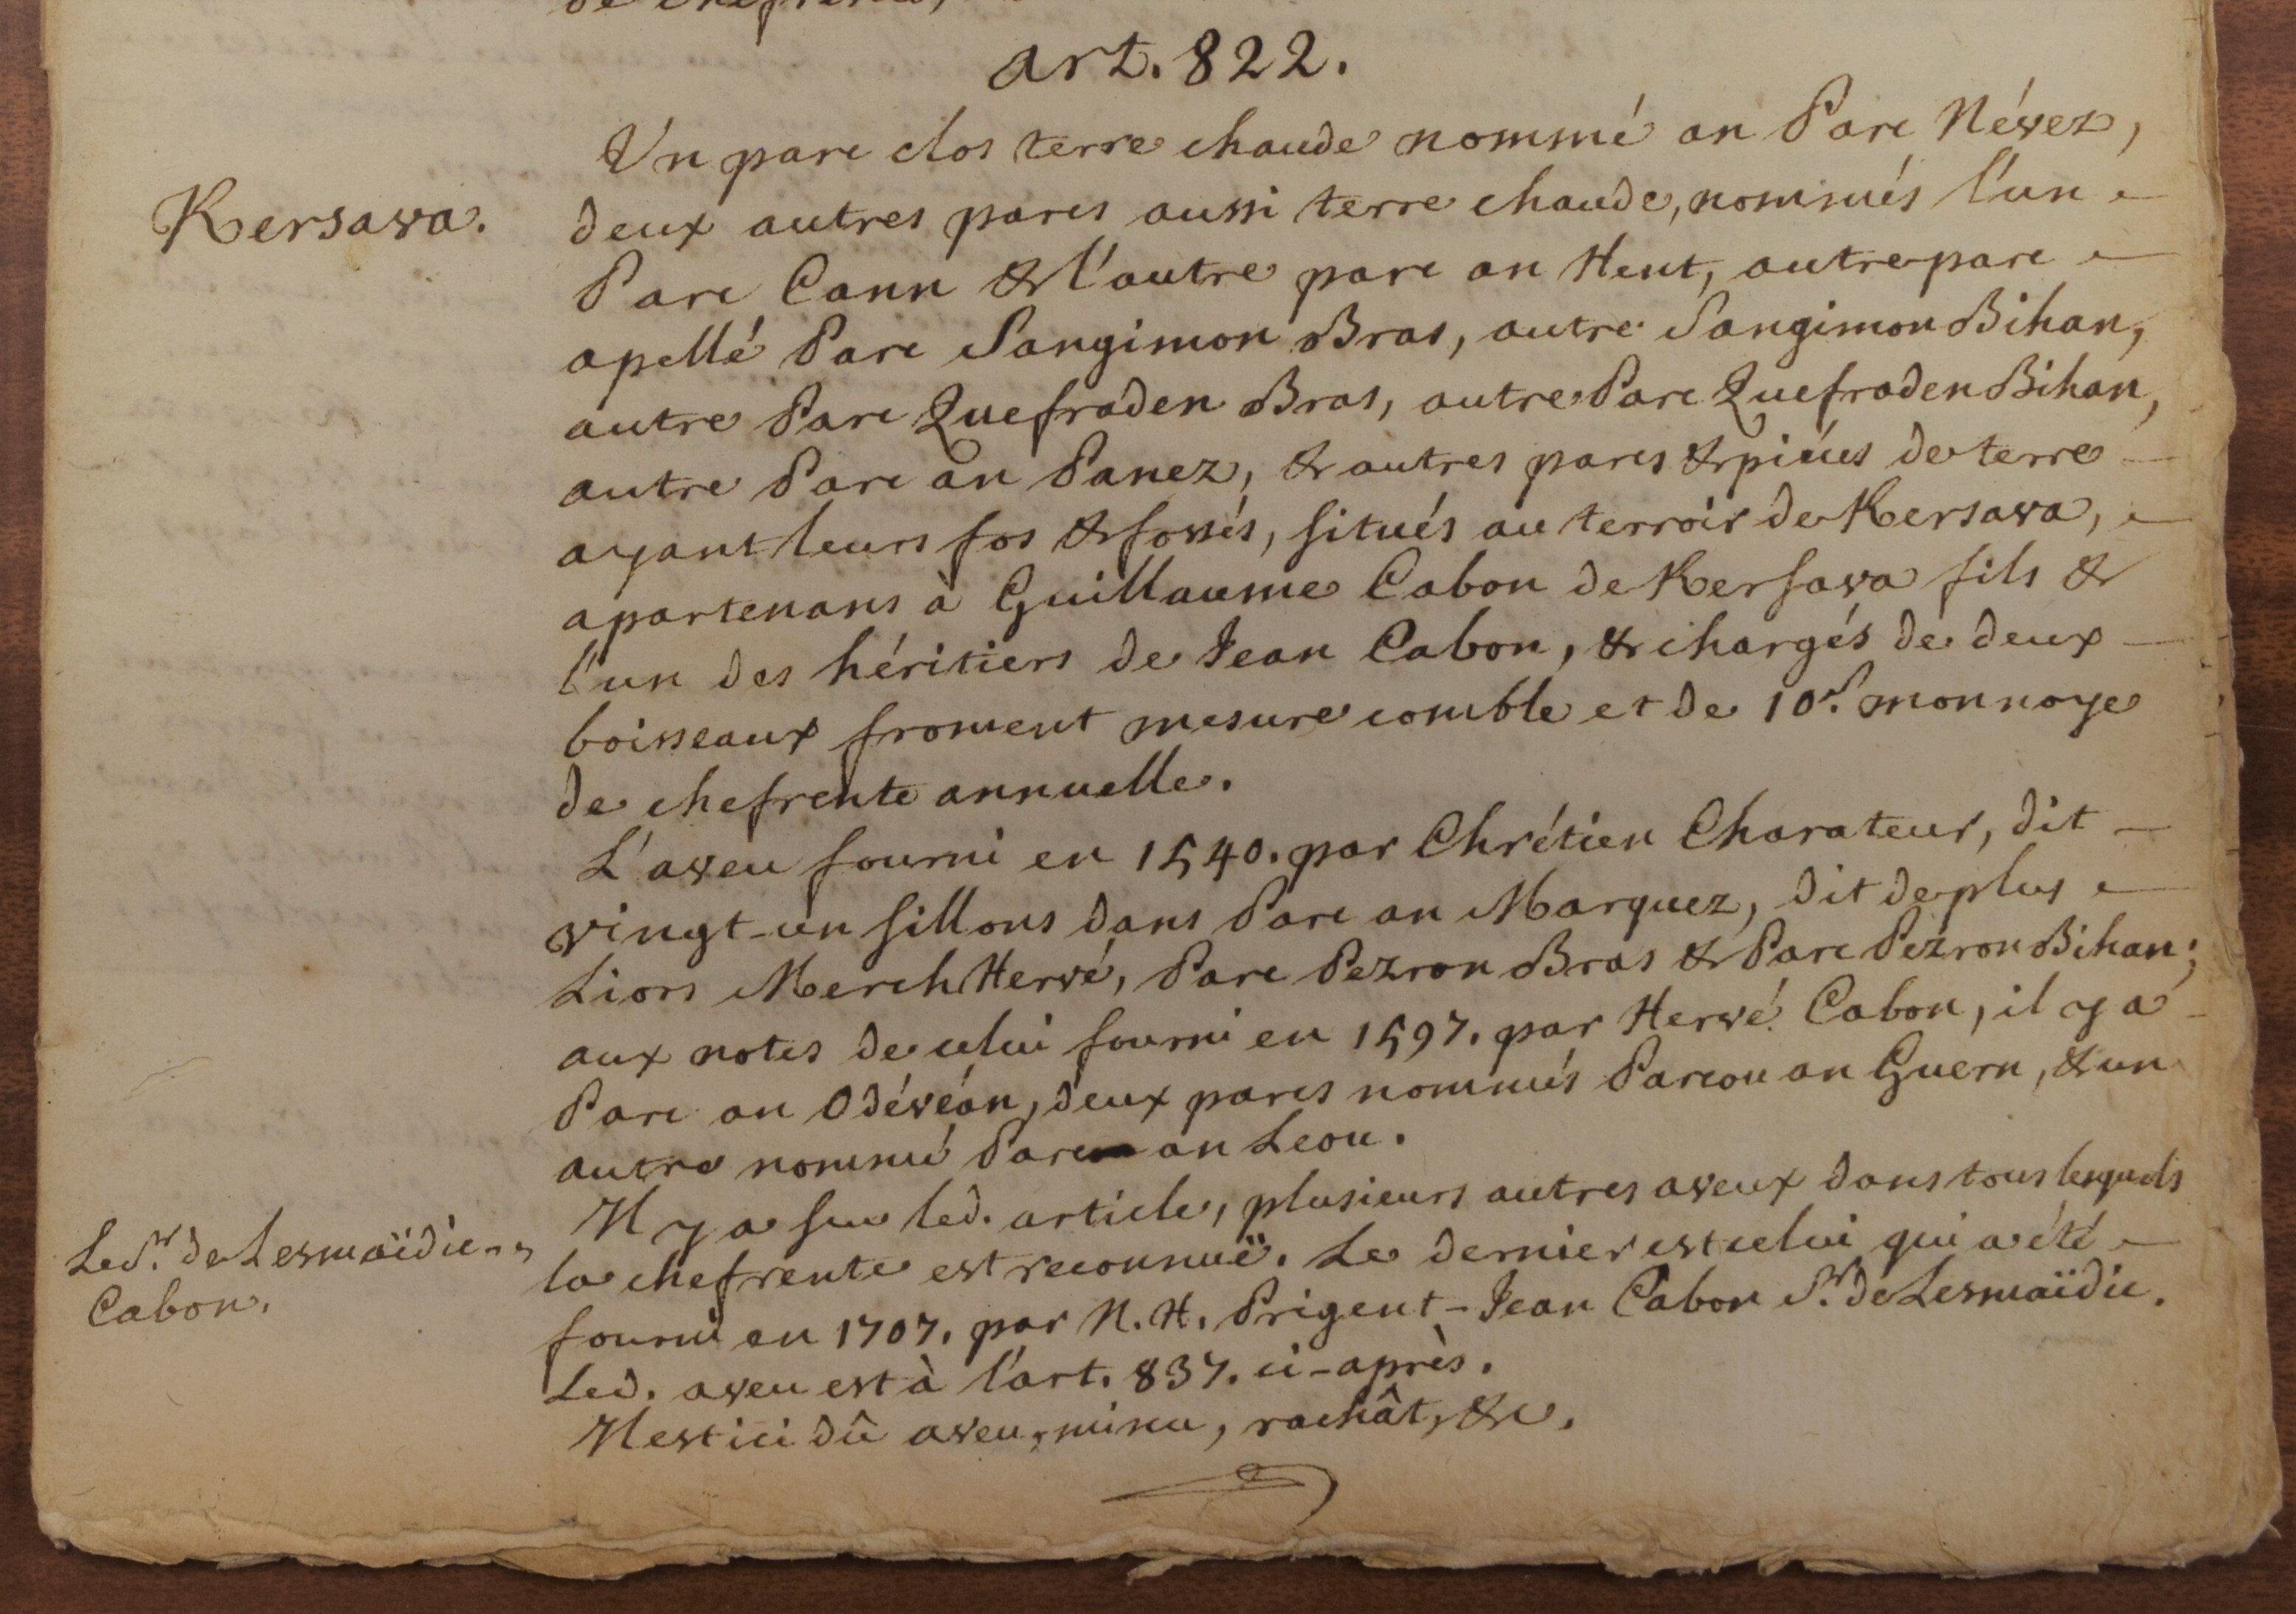 art. 822.
Un parc clos terre chaude nommé an Parc Névez,
Kersava.
deux autres parcs aussi terre chaude, nommés l'un
Parc Cann & l'autre parc an Hent, autre parc
apellé Parc Sangimon Bras, autre Sangimon Bihan,
autre Parc Quefraden Bras, autre Parc Quefraden Bihan,
autre Parc an Panez, & autres parcs & piéces de terre
ayant leurs fos & fossés, situés au terroir de Kersava,
apartenans à Guillaume Cabon de Kersava fils &
l'un des héritiers de Jean Cabon, & chargés de deux
boisseaux froment mesure comble et de 10s. monnoye
de chefrente annuelle.
L'aveu fourni en 1540. par Chrétien Charateur, dit
vingt-un sillons dans Parc an Marquez, dit de plus
Liors Merch Hervé, Parc Pezron Bras & Parc Pezron Bihan;
aux notes de celui fourni en 1597. par Hervé Cabon, il y a
Parc an Odévéan, deux parcs nommés Parcou an Guern, & un
autre nommé Parc an Leou.
Il y a sur led. article, plusieurs autres aveux dans tous lesquels
la chefrente est reconnuë. Le dernier est celui qui a été
Le Sr. de Lesmaïdic
Cabon.
fourni en 1707. par N. H. Prigent-Jean Cabon Sr. de Lesmaïdic.
Led. aveu est à l'art. 837. ci-après.
Il est ici dû aveu, minu, rachât, &c.